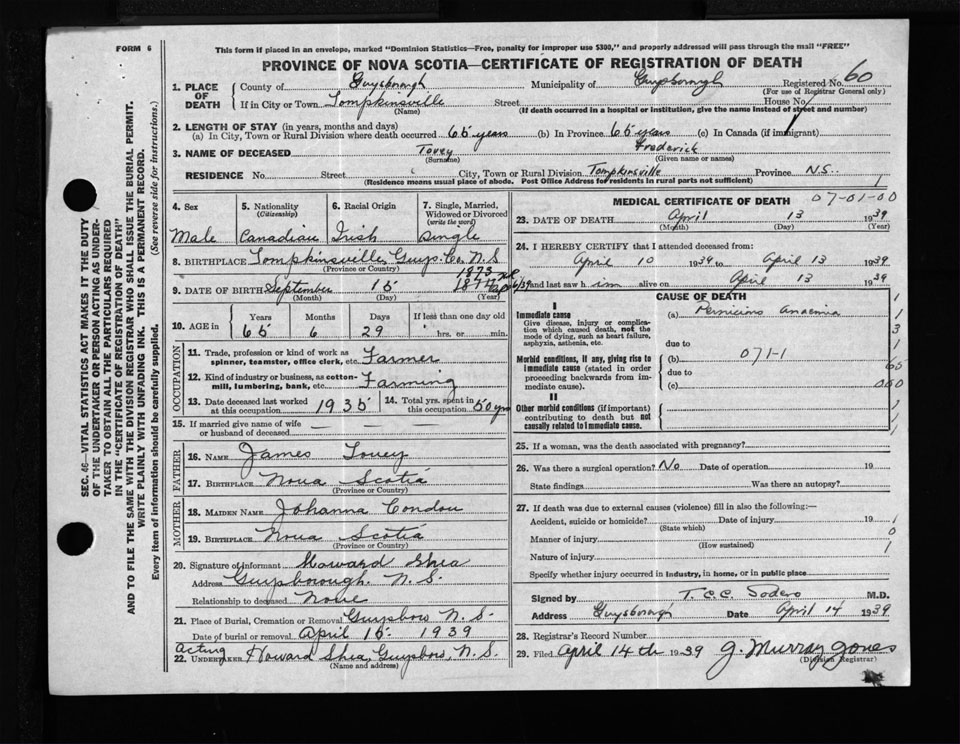 FORM 6
This form if placed in an envelope, marked "Dominion Statistics—Free, penalty for improper use $300," and properly addressed will pass through the mail "FREE"
PROVINCE OF NOVA SCOTIA—CERTIFICATE OF REGISTRATION OF DEATH
SEC. 46—VITAL STATISTICS ACT MAKES IT THE DUTY
OF THE UNDERTAKER OR PERSON ACTING AS UNDER-
TAKER TO OBTAIN ALL THE PARTICULARS REQUIRED
IN THE "CERTIFICATE OF REGISTRATION OF DEATH"
AND TO FILE THE SAME WITH THE DIVISION REGISTRAR WHO SHALL ISSUE THE BURIAL PERMIT.
WRITE PLAINLY WITH UNFADING INK. THIS IS A PERMANENT RECORD.
Every item of information should be carefully supplied. (See reverse side for instructions.)
1. PLACE OF DEATH County of Guysborough Municipality of Guysborough Registered No. 60
(For use of Registrar General only)
If in City or Town Tompkinsville Street House No.
(Name) (If death occurred in a hospital or institution, give the name instead of street and number)
2. LENGTH OF STAY (in years, months and days)
(a) In City, Town or Rural Division where death occurred 65 years (b) In Province 65 years (c) In Canada (if immigrant)
3. NAME OF DECEASED Tovey Frederick
(Surname) (Given name or names)
RESIDENCE No. Street City, Town or Rural Division Tompkinsville Province N.S.
(Residence means usual place of abode. Post Office Address for residents in rural parts not sufficient)
1
4. Sex 5. Nationality (Citizenship) 6. Racial Origin 7. Single, Married, Widowed or Divorced (write the word)
Male Canadian Irish Single
8. BIRTHPLACE Tompkinsville, Guys. Co. N.S
(Province or Country)
1873
9. DATE OF BIRTH September 15 1874
(Month) (Day) (Year)
10. AGE in Years Months Days If less than one day
65 6 29 hrs. or min.
OCCUPATION
11. Trade, profession or kind of work as spinner, teamster, office clerk, etc. Farmer
12. Kind of industry or business, as cotton-mill, lumbering, bank, etc. Farming
13. Date deceased last worked at this occupation 1935 14. Total yrs. spent in this occupation 50 yrs
15. If married give name of wife or husband of deceased
FATHER
16. NAME James Tovey
17. BIRTHPLACE Nova Scotia
(Province or Country)
MOTHER
18. MAIDEN NAME Johanna Condon
19. BIRTHPLACE Nova Scotia
(Province or Country)
20. Signature of informant Howard Shea
Address Guysborough. N.S.
Relationship to deceased None
21. Place of Burial, Cremation or Removal Guysboro N.S.
Date of burial or removal April 15 1939
Acting
22. UNDERTAKER Howard Shea, Guysboro, N.S.
(Name and address)
MEDICAL CERTIFICATE OF DEATH 07-01-00
23. DATE OF DEATH April 13 1939
(Month) (Day) (Year)
24. I HEREBY CERTIFY that I attended deceased from:
April 10 1939 to April 13 1939
and last saw him alive on April 13 1939
CAUSE OF DEATH
I
Immediate cause (a) Pernicious Anaemia
Give disease, injury or complica-
tion which caused death, not the
mode of dying, such as heart failure,
asphyxia, asthenia, etc.
due to
Morbid conditions, if any, giving rise to (b) 071-1
immediate cause (stated in order
proceeding backwards from im-
mediate cause).
due to
(c)
II
Other morbid conditions (if important)
contributing to death but not
causally related to immediate cause.
1
1
3
1
65
000
25. If a woman, was the death associated with pregnancy?
26. Was there a surgical operation? No Date of operation 19
State findings Was there an autopsy?
27. If death was due to external causes (violence) fill in also the following:—
Accident, suicide or homicide? Date of injury 19
(State which)
Manner of injury
(How sustained)
Nature of injury
1
0
1
Specify whether injury occurred in industry, in home, or in public place
Signed by T.C.C. Sodero M.D.
Address Guysborough Date April 14 1939
28. Registrar's Record Number
29. Filed April 14th 1939 J. Murray Jones
(Division Registrar)
60